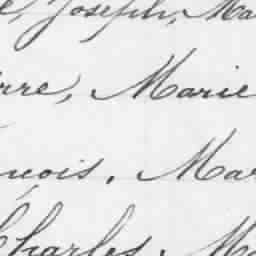 Joseph, Ma
rre, Marie
çois, Mar
Charles, Ma